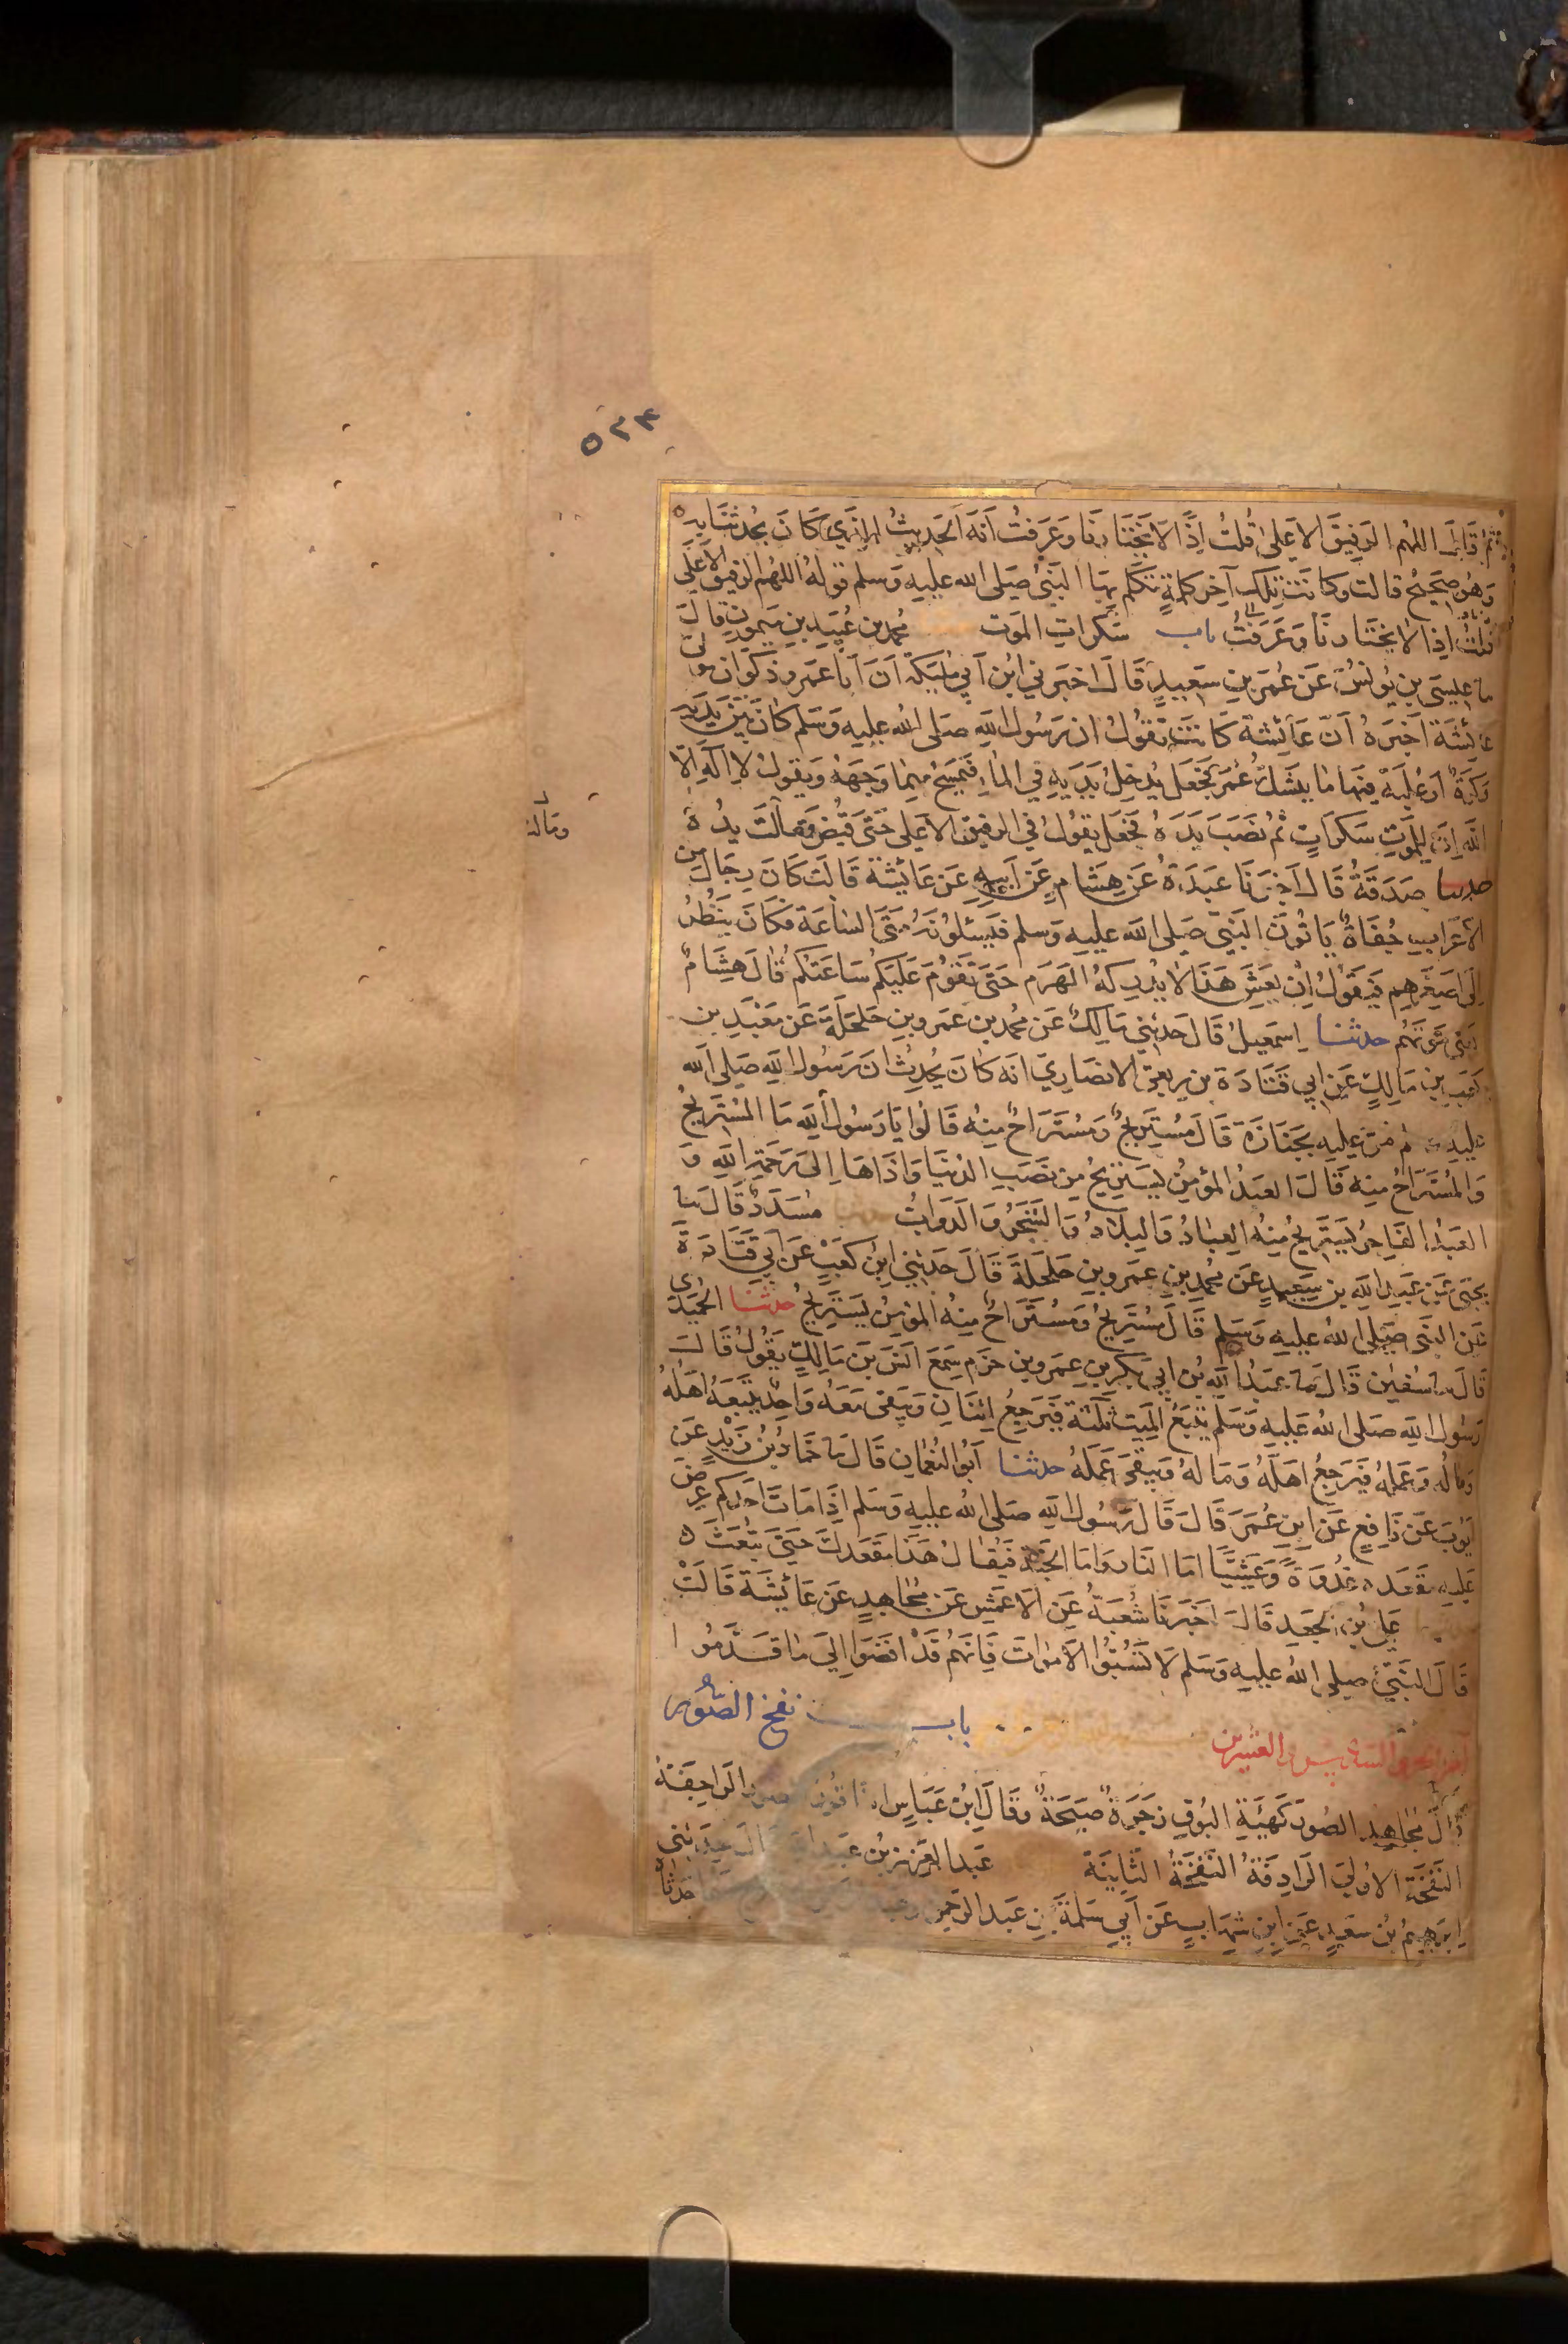 ٥٢٤
ثم قال اللهم الرفيق الاعلى قلت اذا لا يختارنا وعرفت انه الحديث الذي كان يحدثنا به
وهو صحيح قالت وكانت تلك آخر كلمة تكلم بها النبي صلى الله عليه وسلم قوله اللهم الرفيق الاعلى
قلت اذا لا يختارنا وعرفت باب سكرات الموت محمد بن عبيد بن ميمون قال
ما عيسى بن يونس عن عمر بن سعيد قال اخبرني ابن ابي مليكة ان ابا عمرو ذكوان مولى
عائشة اخبره ان عائشة كانت تقول ان رسول الله صلى الله عليه وسلم كان بين يديه
ركوة او علبة فيها ما يشك عمر فجعل يدخل يديه في الماء فيمسح بهما وجهه ويقول لا اله الا
الله ان للموت سكرات ثم نصب يده فجعل يقول في الرفيق الاعلى حتى قبض ومالت يده
ومالت
حدثنا صدقة قال اخبرنا عبدة عن هشام عن ابيه عن عائشة قالت كان رجال من
الاعراب جفاة ياتون النبي صلى الله عليه وسلم فيسئلونه متى الساعة فكان ينظر
الى اصغرهم فيقول ان يعش هذا لا يدركه الهرم حتى تقوم عليكم ساعتكم قال هشام
يعني موتهم حدثنا اسمعيل قال حدثني مالك عن محمد بن عمرو بن حلحلة عن معبد بن
كعب بن مالك عن ابي قتادة بن ربعي الانصاري انه كان يحدث ان رسول الله صلى الله
عليه مر عليه بجنازة قال مستريح ومستراح منه قالوا يا رسول الله ما المستريح
والمستراح منه قال العبد المؤمن يستريح من نصب الدنيا واذاها الى رحمة الله و
العبد الفاجر يستريح منه العباد والبلاد والشجر والدواب مسدد قال ما
يحيى عن عبد الله بن سعيد عن محمد بن عمرو بن حلحلة قال حدثني ابن كعب عن ابي قتادة
عن النبي صلى الله عليه وسلم قال مستريح ومستراح منه المؤمن يستريح حدثنا الحميدي
قال ما سفين قال ما عبد الله بن ابي بكر بن عمرو بن حزم سمع انس بن مالك يقول قال
رسول الله صلى الله عليه وسلم يتبع الميت ثلثة فيرجع اثنان ويبقى معه واحد يتبعه اهله
وماله وعمله فيرجع اهله وماله ويبقى عمله حدثنا ابو النعمان قال ما حماد بن زيد عن
ايوب عن نافع عن ابن عمر قال قال رسول الله صلى الله عليه وسلم اذا مات احدكم عرض
عليه مقعده غدوة وعشيا اما النار واما الجنة فيقال هذا مقعدك حتى تبعث
علي بن الجعد قال اخبرنا شعبة عن الاعمش عن مجاهد عن عائشة قالت
قال النبي صلى الله عليه وسلم لا تسبوا الاموات فانهم قد افضوا الى ما قدموا
آخر الجزو السادس والعشرين باب نفخ الصور
قال مجاهد الصور كهيئة البوق زجرة صيحة وقال ابن عباس الراجفة
النفخة الاولى الرادفة النفخة الثانية عبد العزيز بن عبد الله قال حدثني
ابرهيم بن سعيد عن ابن شهاب عن ابي سلمة بن عبد الرحمن حدثاه